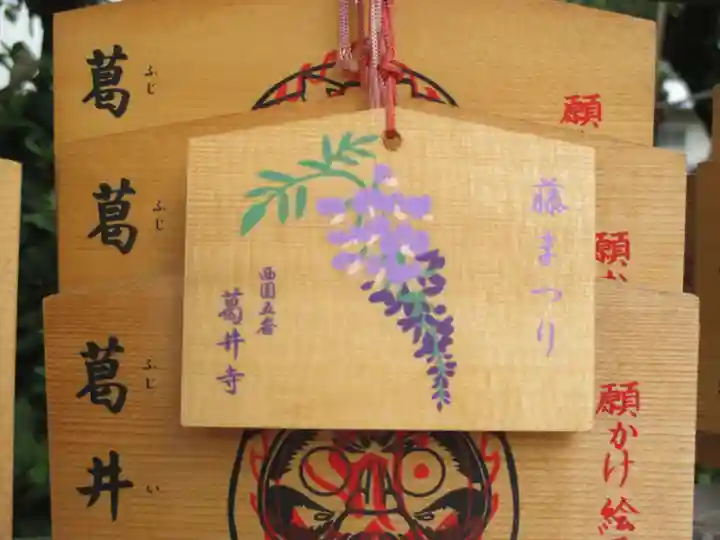 藤まつり
西国五番
葛井寺
願
葛
ふじ
願か
葛
ふじ
願かけ絵
葛井
ふじい